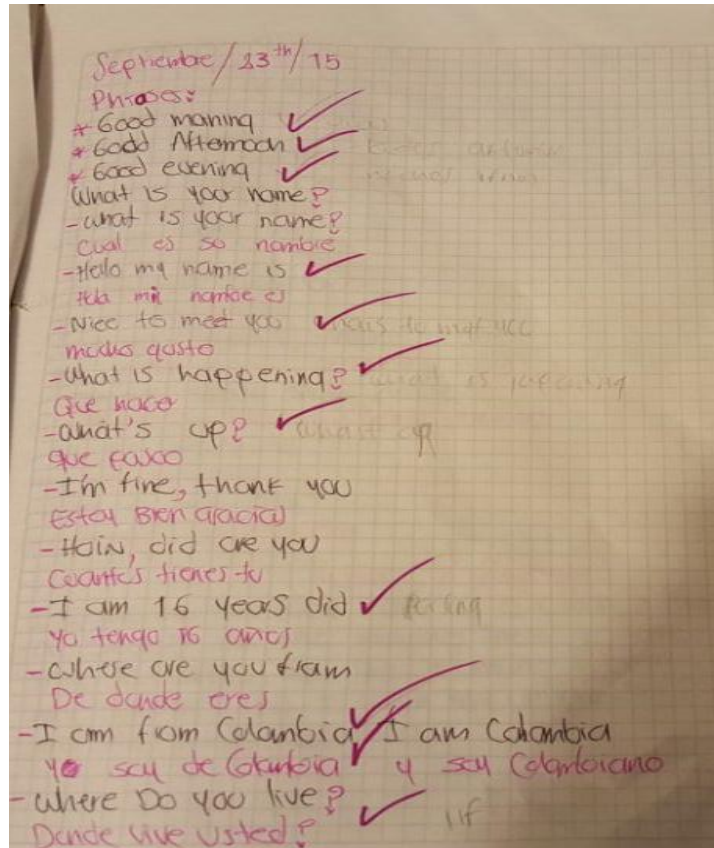 Septiembre/23th/15
Phrases:
* Good maning
* Godd Afternoon
* Good evening
What is your name?
- what is your name?
Cual es so nombre
- Hello my name is
Hola mi nombe es
- Nice to meet you
mucho gusto
- What is happening?
Que
- What's up?
que
- I'm fine, thank you
Estoy Bien Gracias
- did are you
Cuantos tienes tu
- I am 16 years did
Yo tengo 16 años
- Where are you fram
De donde eres
- I am from Colombia I am Colombia
yo soy de Colombia y soy Colombiano
- where Do you live?
Donde vive Usted?